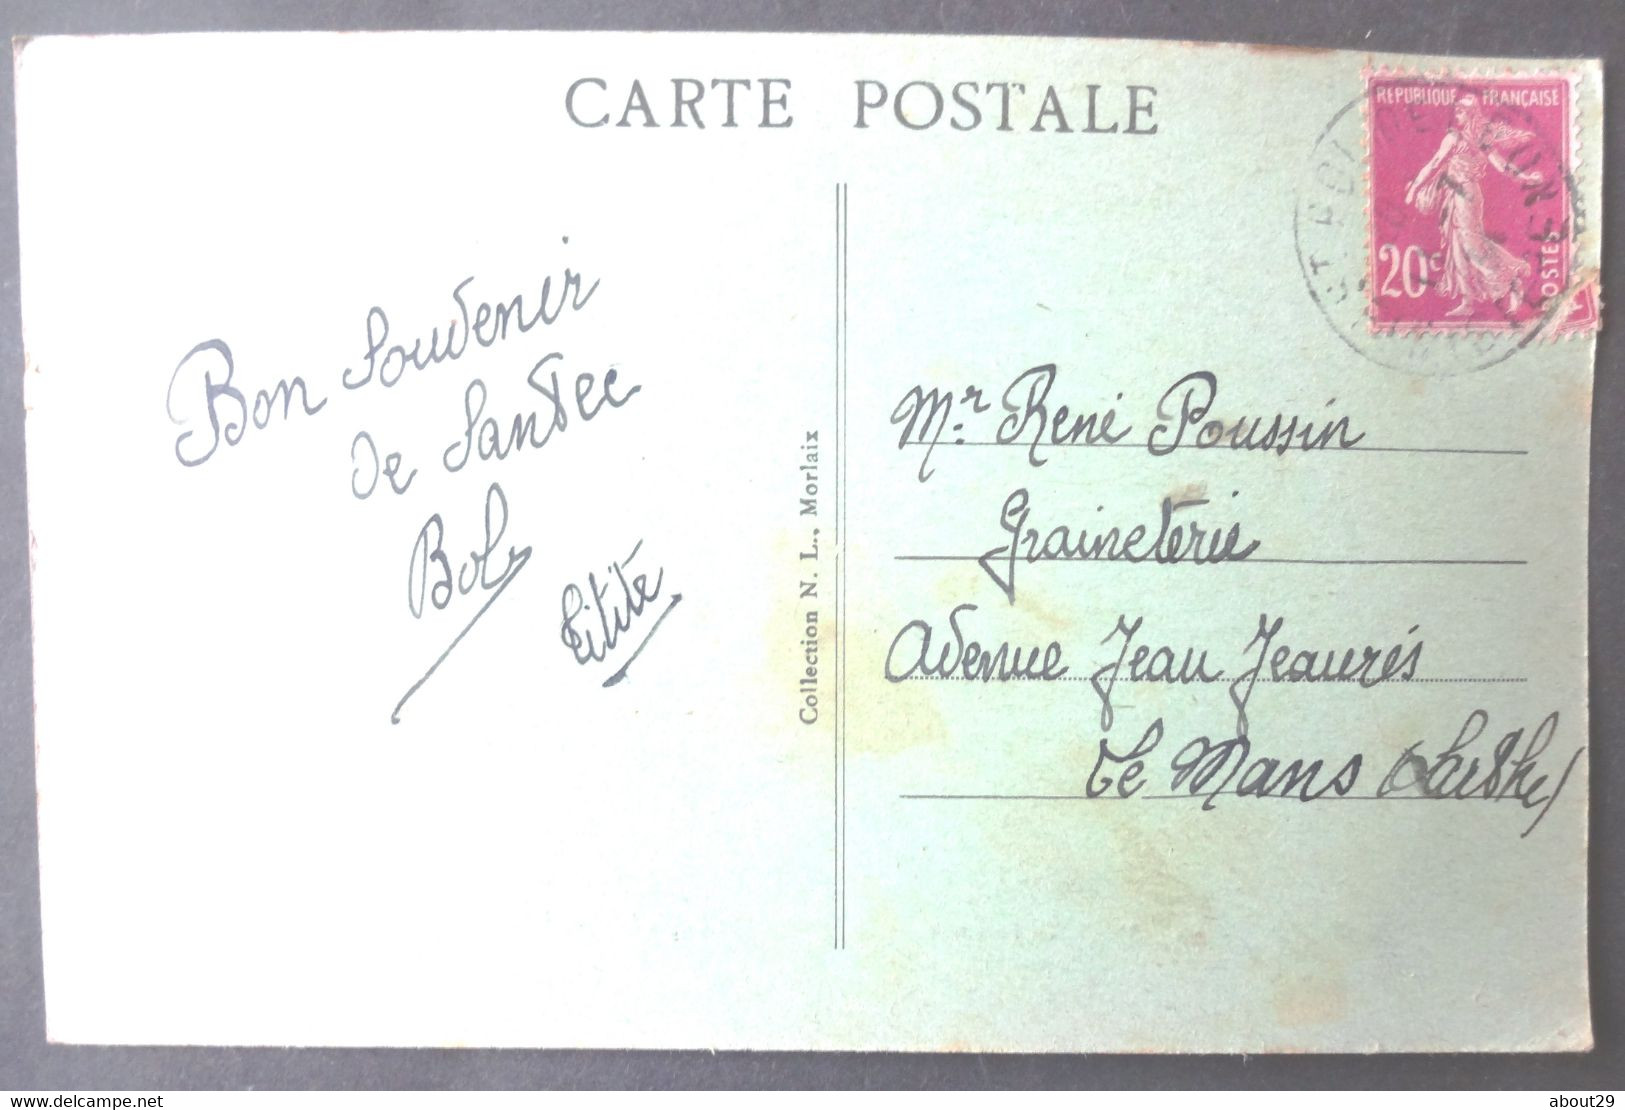 CARTE POSTALE
RÉPUBLIQUE FRANÇAISE
20c
POSTES
Bon Souvenir
de Santec
Bob
Titite
Collection N. L., Morlaix
Mr. René Poussin
Graineterie
Avenue Jean Jeaurés
Le Mans (Sarthe)
delcampe.net
about29